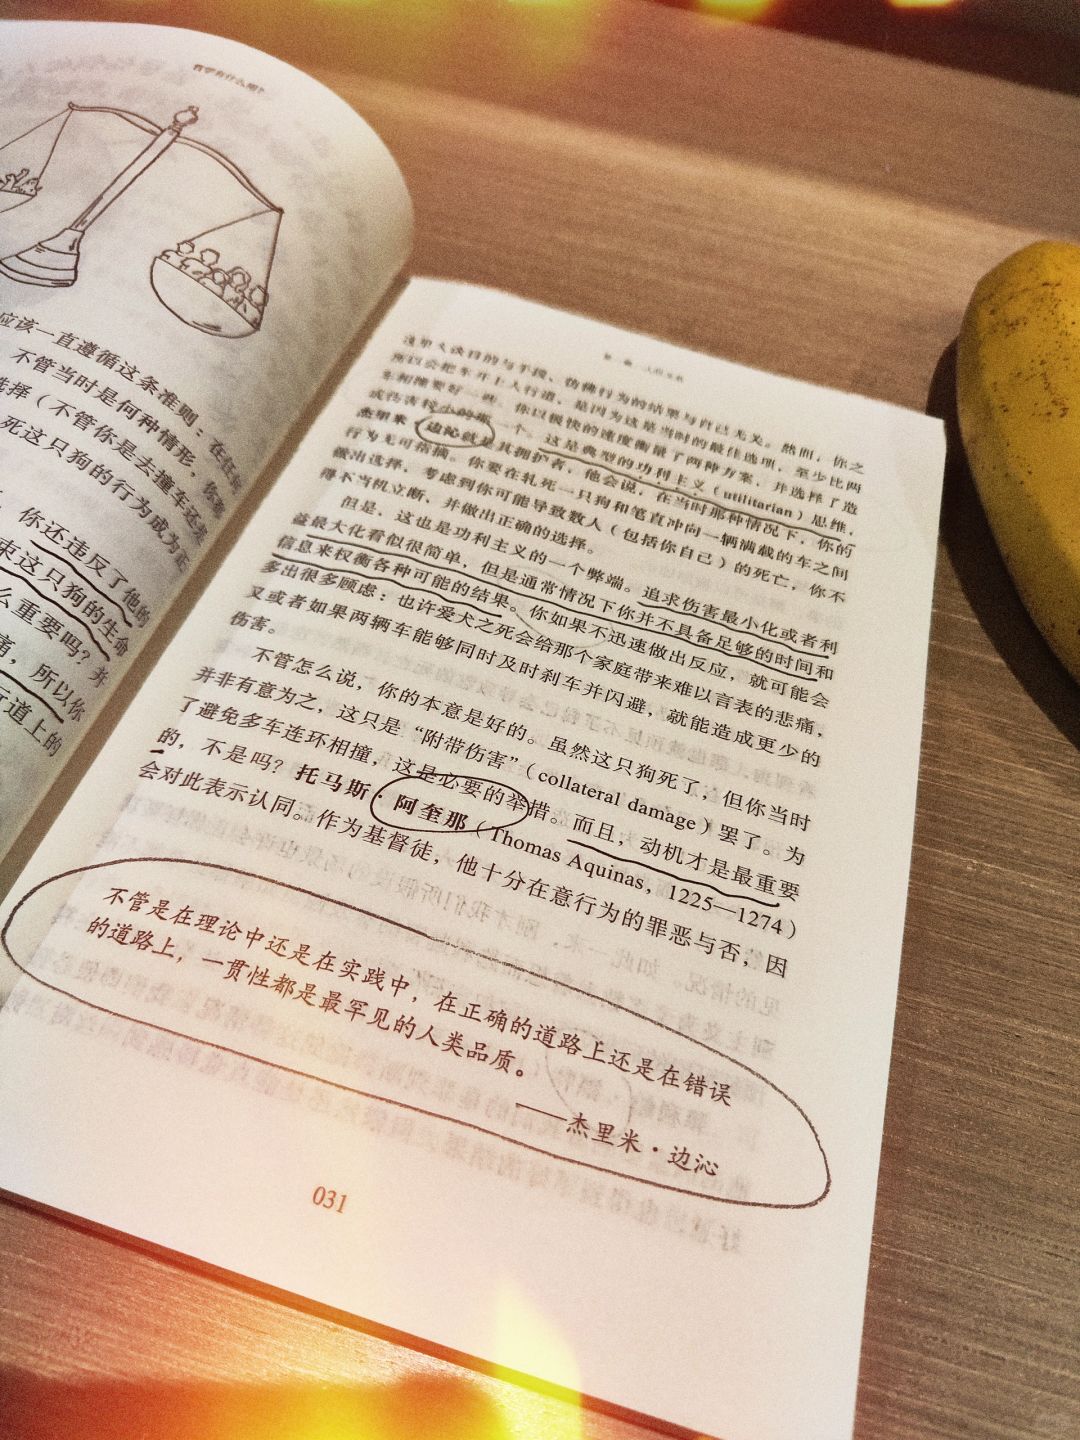 哲学有什么用?
应该一直遵循这条准则：在任何
不管当时是何种情形，你
选择（不管你是去撞车还
死这只狗的行为成为正
你还违反了他的
束这只狗的生命
么重要吗？并
痛，所以你
行道上的
谈目的与手段，仿佛行为的结果与自己无关。然而，你之
所以会把车开上人行道，是因为这是当时的最佳选项，至少比两
车相撞要好一些。你以很快的速度衡量了两种方案，并选择了造
成伤害较小的那一个。这是典型的功利主义（utilitarian）思维，
杰里米·边沁就是其拥护者，他会说，在当时那种情况下，你的
行为无可指摘。你要在轧死一只狗和笔直冲向一辆满载的车之间
做出选择，考虑到你可能导致数人（包括你自己）的死亡，你不
得不当机立断，并做出正确的选择。
但是，这也是功利主义的一个弊端。追求伤害最小化或者利
益最大化看似很简单，但是通常情况下你并不具备足够的时间和
信息来权衡各种可能的结果。你如果不迅速做出反应，就可能会
多出很多顾虑：也许爱犬之死会给那个家庭带来难以言表的悲痛，
又或者如果两辆车能够同时及时刹车并闪避，就能造成更少的
伤害。
不管怎么说，你的本意是好的。虽然这只狗死了，但你当时
并非有意为之，这只是“附带伤害”（collateral damage）罢了。为
了避免多车连环相撞，这是必要的举措。而且，动机才是最重要
的，不是吗？托马斯·阿奎那（Thomas Aquinas，1225—1274）
会对此表示认同。作为基督徒，他十分在意行为的罪恶与否，因
不管是在理论中还是在实践中，在正确的道路上还是在错误
的道路上，一贯性都是最罕见的人类品质。
——杰里米·边沁
031